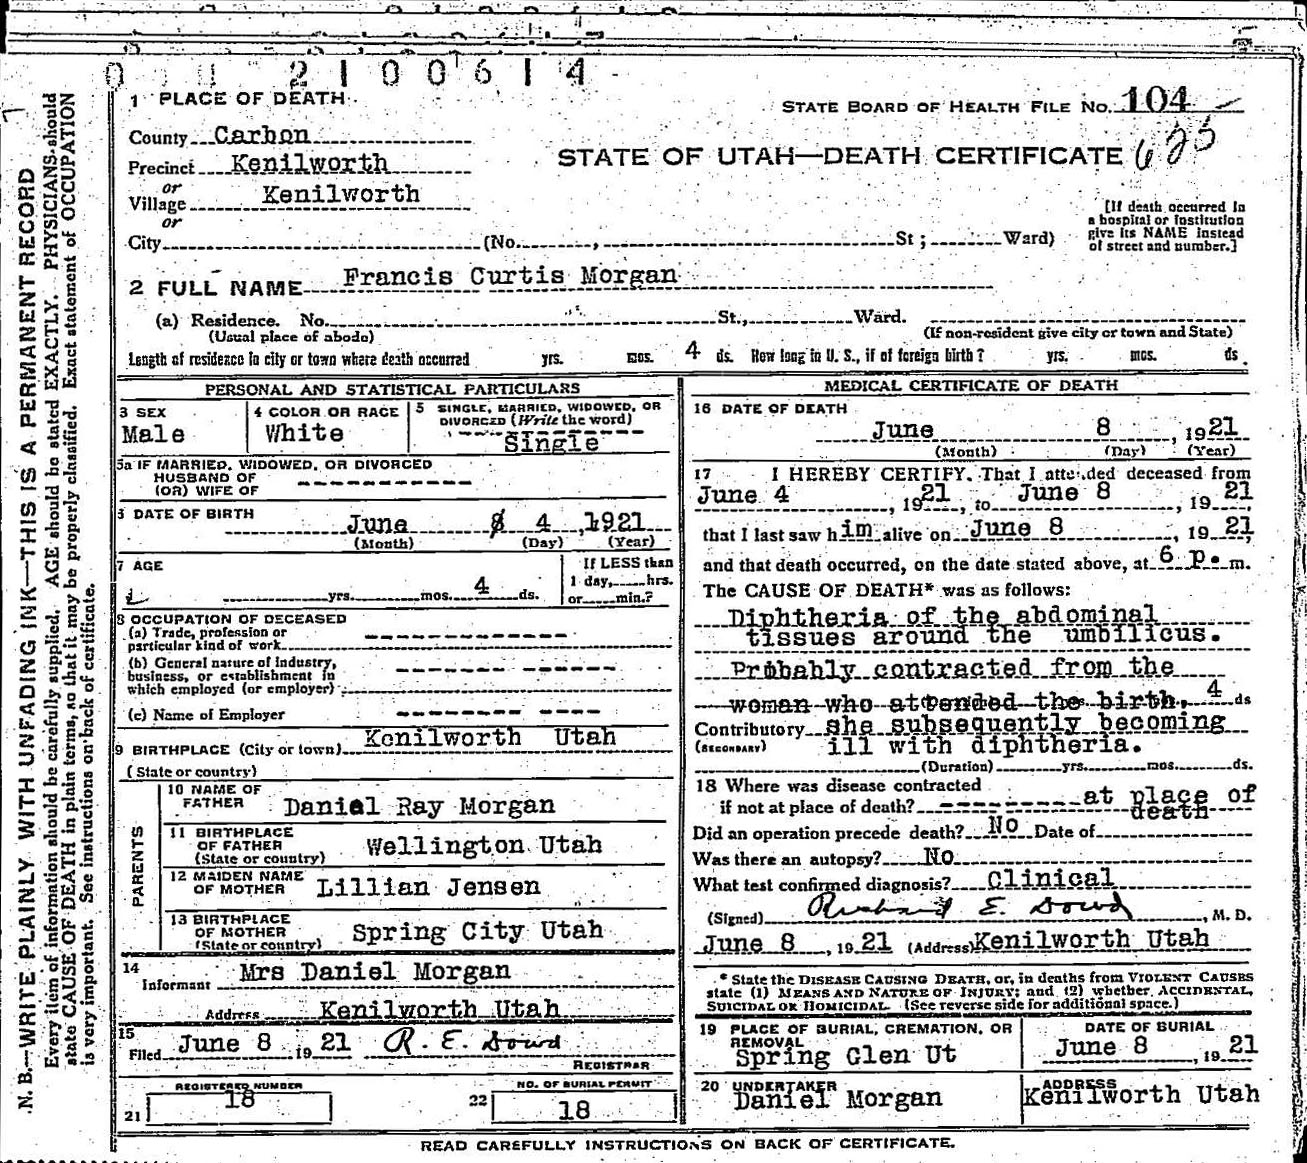 0 0 2 1 0 0 6 1 4
1 PLACE OF DEATH
STATE BOARD OF HEALTH FILE NO. 104
County Carbon
625
Precinct Kenilworth
STATE OF UTAH—DEATH CERTIFICATE
or
Village Kenilworth
or
City (No. , St ; Ward)
[If death occurred in
a hospital or institution
give its NAME instead
of street and number.]
2 FULL NAME Francis Curtis Morgan
(a) Residence. No. St., Ward.
(Usual place of abode) (If non-resident give city or town and State)
Length of residence in city or town where death occurred yrs. mos. 4 ds. How long in U. S., if of foreign birth? yrs. mos. ds.
PERSONAL AND STATISTICAL PARTICULARS
3 SEX
Male
4 COLOR OR RACE
White
5 SINGLE, MARRIED, WIDOWED, OR
DIVORCED (Write the word)
Single
5a IF MARRIED, WIDOWED, OR DIVORCED
HUSBAND OF
(OR) WIFE OF
6 DATE OF BIRTH
June 4 , 1921
(Month) (Day) (Year)
7 AGE
yrs. mos. 4 ds.
If LESS than
1 day, hrs.
or min.?
8 OCCUPATION OF DECEASED
(a) Trade, profession or
particular kind of work
(b) General nature of industry,
business, or establishment in
which employed (or employer)
(c) Name of Employer
9 BIRTHPLACE (City or town) Kenilworth Utah
(State or country)
PARENTS
10 NAME OF
FATHER Daniel Ray Morgan
11 BIRTHPLACE
OF FATHER
(State or country) Wellington Utah
12 MAIDEN NAME
OF MOTHER Lillian Jensen
13 BIRTHPLACE
OF MOTHER
(State or country) Spring City Utah
14
Informant Mrs Daniel Morgan
Address Kenilworth Utah
15
Filed June 8 19 21 R. E. Dowd
REGISTRAR
REGISTERED NUMBER
21 18
NO. OF BURIAL PERMIT
22 18
MEDICAL CERTIFICATE OF DEATH
16 DATE OF DEATH
June 8 , 1921
(Month) (Day) (Year)
17 I HEREBY CERTIFY, That I attended deceased from
June 4 , 19 21, to June 8 , 19 21
that I last saw him alive on June 8 , 19 21,
and that death occurred, on the date stated above, at 6 p. m.
The CAUSE OF DEATH* was as follows:
Diphtheria of the abdominal
tissues around the umbilicus.
Probably contracted from the
woman who attended the birth, 4 ds
Contributory she subsequently becoming
(SECONDARY) ill with diphtheria.
(Duration) yrs. mos. ds.
18 Where was disease contracted
if not at place of death? at place of
death
Did an operation precede death? No Date of
Was there an autopsy? No
What test confirmed diagnosis? Clinical
(Signed) Richard E. Dowd , M. D.
June 8 , 19 21 (Address) Kenilworth Utah
* State the DISEASE CAUSING DEATH, or, in deaths from VIOLENT CAUSES
state (1) MEANS AND NATURE OF INJURY; and (2) whether ACCIDENTAL,
SUICIDAL OR HOMICIDAL. (See reverse side for additional space.)
19 PLACE OF BURIAL, CREMATION, OR
REMOVAL
Spring Glen Ut
DATE OF BURIAL
June 8 , 19 21
20 UNDERTAKER
Daniel Morgan
ADDRESS
Kenilworth Utah
READ CAREFULLY INSTRUCTIONS ON BACK OF CERTIFICATE.
N. B.—WRITE PLAINLY WITH UNFADING INK—THIS IS A PERMANENT RECORD
Every item of information should be carefully supplied. AGE should be stated EXACTLY. PHYSICIANS should
state CAUSE OF DEATH in plain terms, so that it may be properly classified. Exact statement of OCCUPATION
is very important. See instructions on back of certificate.